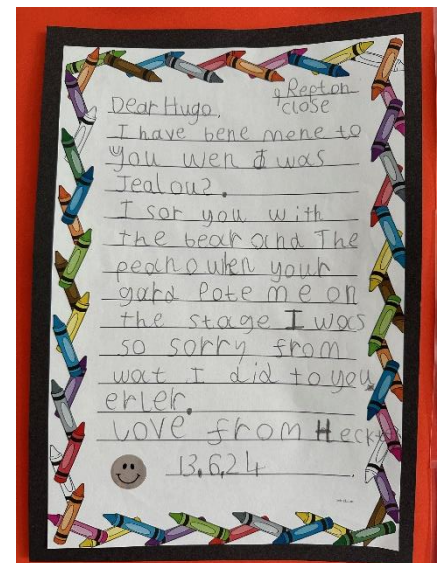 9 Repton
close
Dear Hugo,
I have bene mene to
you wen I was
Jealous.
I sor you with
the bear and The
peano when your
gard Pote me on
the stage I was
so sorry from
wat I did to you
erler.
Love from Heckt
13.6.24